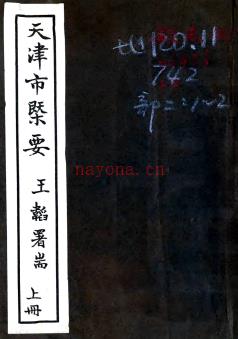 天津市槩要 王韜署耑 上冊
地120.11
742
部二:1~2
nayona.cn